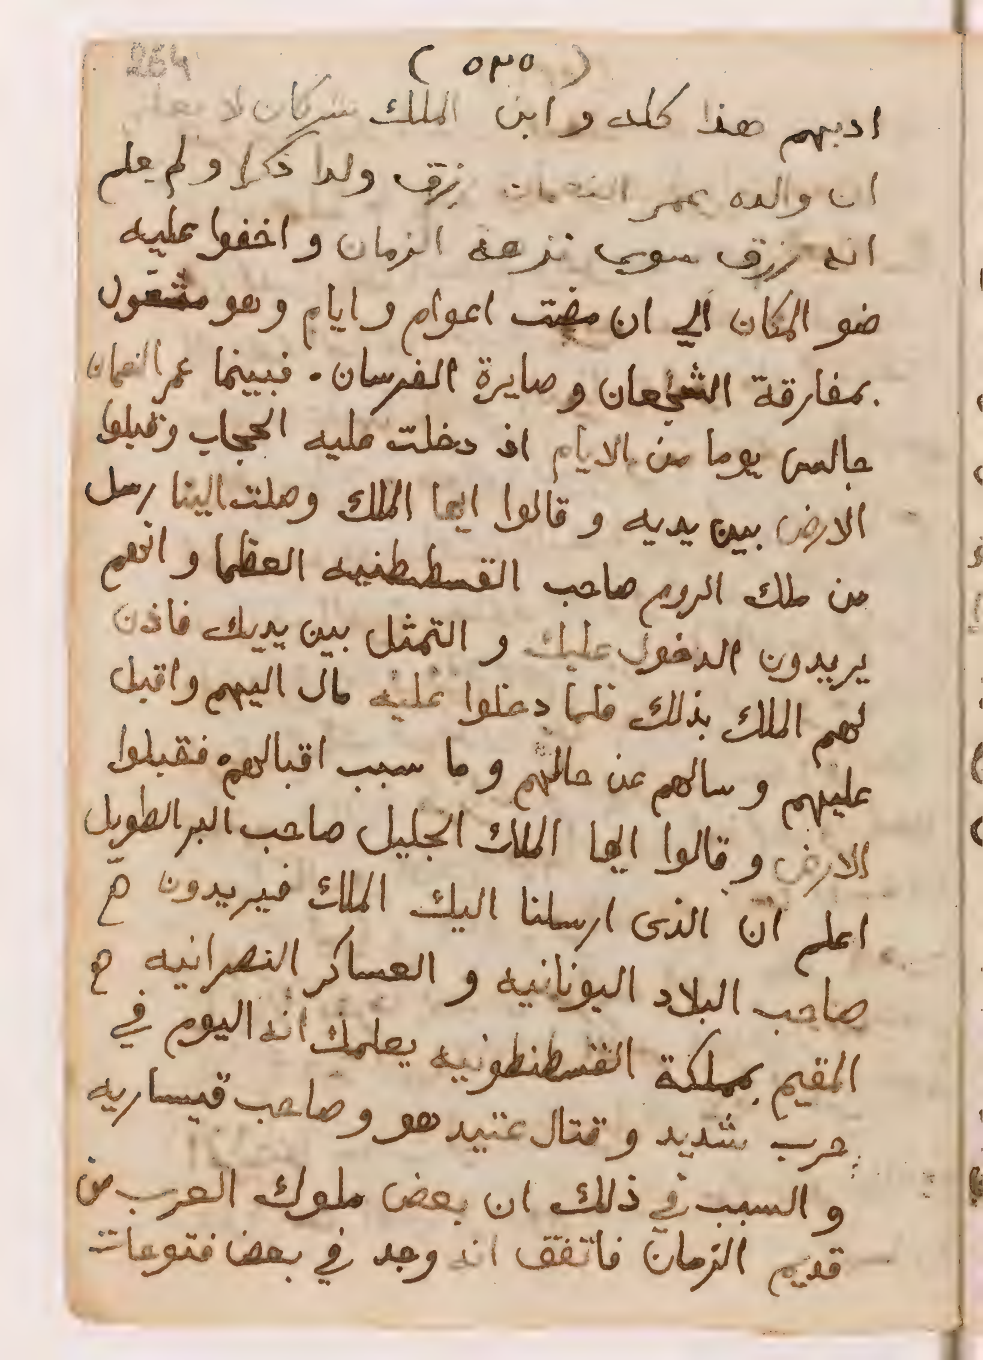 264
(٥٣٥)
ادبهم هذا كله و ابن الملك شركان لا يعلم
ان والده عمر النعمان رزق ولدا ذكرا و لم يعلم
انه رزق سوى نزهة الزمان و اخفوا عليه
ضو المكان الي ان مضت اعوام و ايام و هو مشغول
بمفارقة الشجعان و صايرة الفرسان . فبينما عمر النعمان
جالس يوما من الايام اذ دخلت عليه الحجاب وقبلوا
الارض بين يديه و قالوا ايها الملك وصلت الينا رسل
من ملك الروم صاحب القسطنطنيه العظما و انهم
يريدون الدخول عليك و التمثل بين يديك فاذن
لهم الملك بذلك فلما دخلوا عليه مال اليهم واقبل
عليهم و سالهم عن حالهم و ما سبب اقبالهم فقبلوا
الارض و قالوا ايها الملك الجليل صاحب البر الطويل
اعلم ان الذى ارسلنا اليك الملك فيريدون
صاحب البلاد اليونانيه و العساكر النصرانيه
المقيم بمملكة القسطنطونيه يعلمك انه اليوم في
حرب شديد و قتال عتيد هو و صاحب قيساريه
و السبب في ذلك ان بعض ملوك العرب من
قديم الزمان فاتفق انه وجد في بعض فتوحات